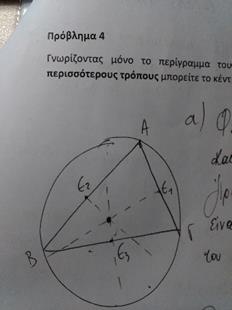 Πρόβλημα 4
Γνωρίζοντας μόνο το περίγραμμα του
περισσότερους τρόπους μπορείτε το κέντ
α)
A
ε2
ε1
Γ
ε3
B
είνα
του